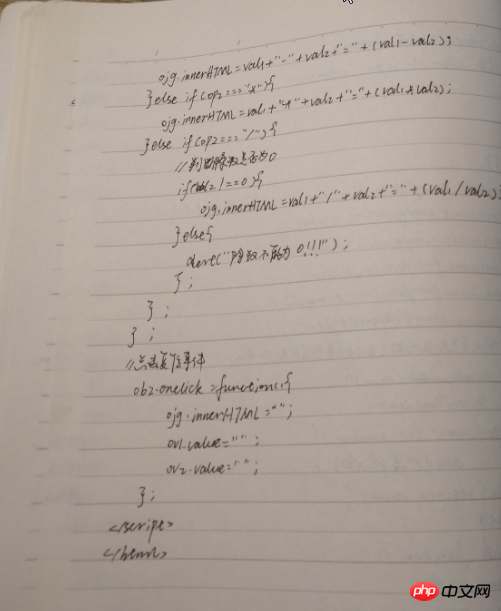 ojg.innerHTML=val1+"-"+val2+"="+(val1-val2);
}else if(op2==="*"){
ojg.innerHTML=val1+"*"+val2+"="+(val1*val2);
}else if(op2==="/"){
//判断除数是否为0
if(val2!==0){
ojg.innerHTML=val1+"/"+val2+"="+(val1/val2)
}else{
alert("除数不能为0!!!");
};
};
};
//点击复位事件
ob2.onclick=function(){
ojg.innerHTML="";
ov1.value="";
ov2.value="";
};
</script>
</html>
php中文网